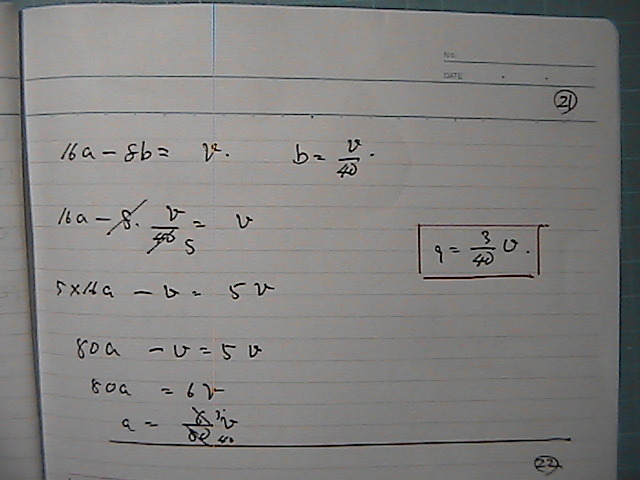 NO.
DATE . .
21
16a - 8b = v. b = v/40.
16a - 8 · v/40 5 = v
a = 3/40 v.
5×16a - v = 5v
80a - v = 5v
80a = 6v
a = 6/80 3/40 v
22